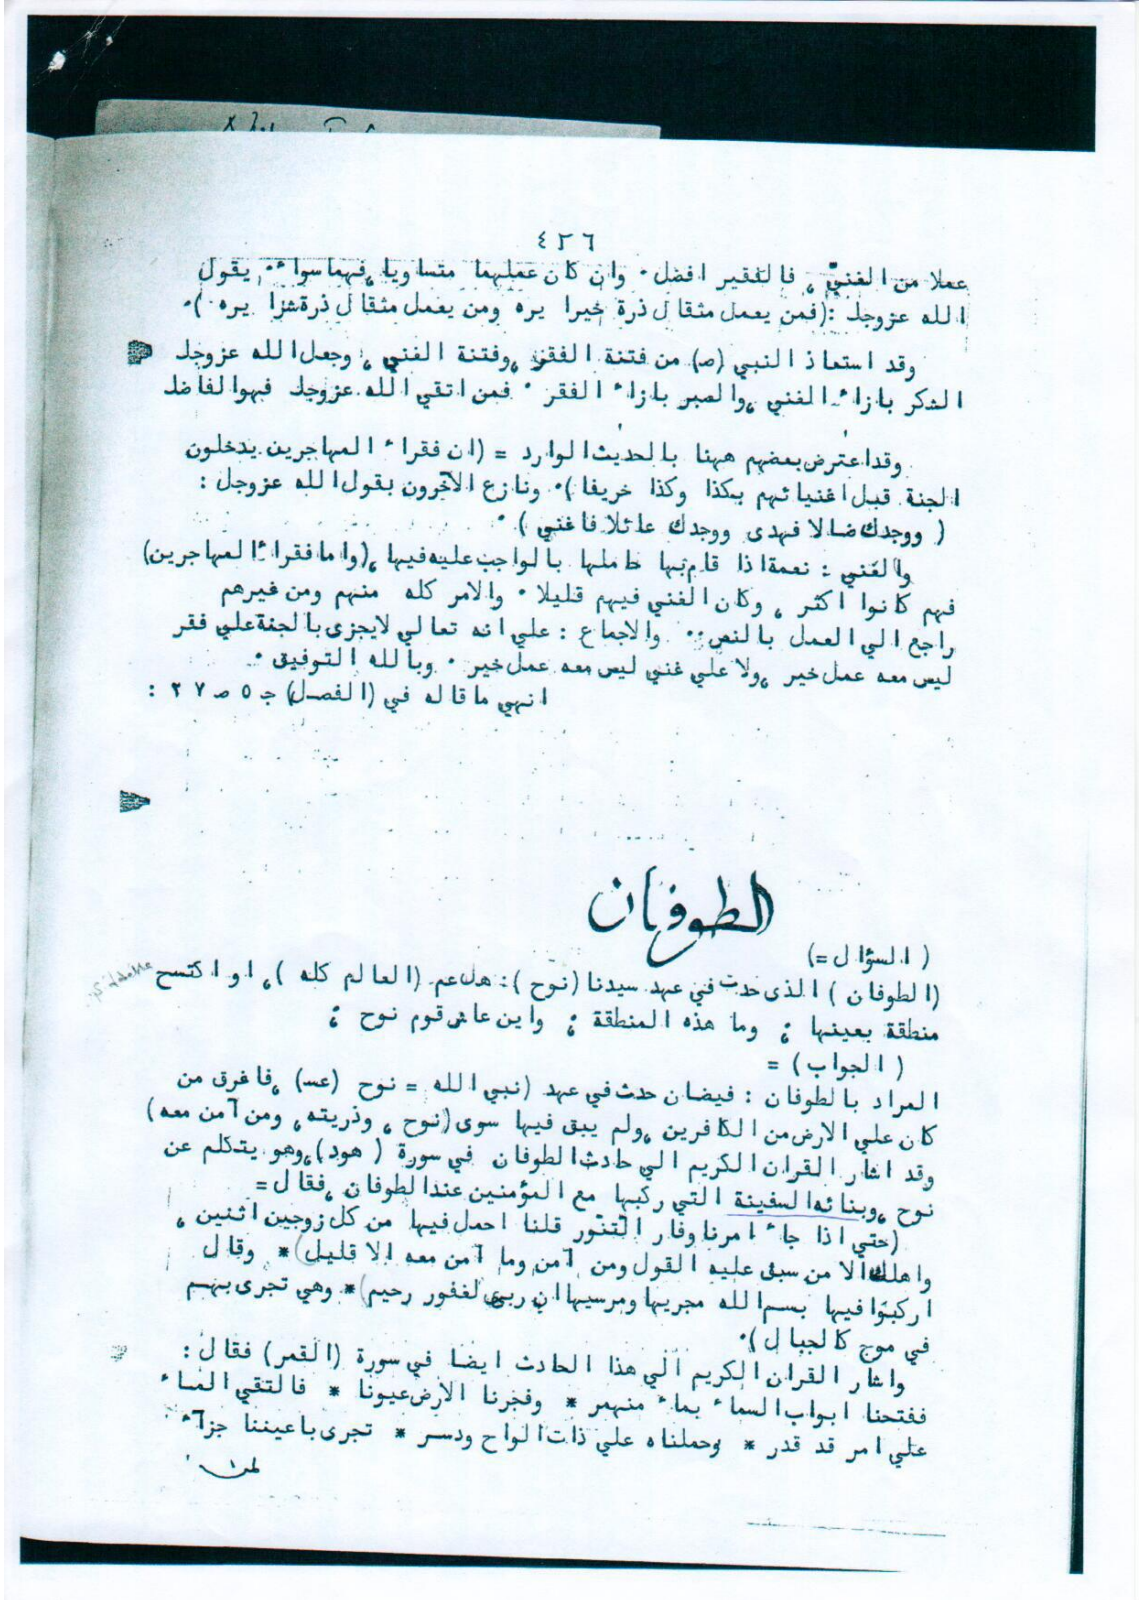 ٤٢٦
عملا من الغنيّ ، فالفقير افضل ۰ وان كان عملهما متساويا ،فهما سواء ۰۰ يقول
الله عزوجل :(فمن يعمل مثقال ذرة خيرا يره ومن يعمل مثقال ذرة شرا يره )۰
وقد استعاذ النبي (ص) من فتنة الفقر ،وفتنة الغني ، وجعل الله عزوجل
الشكر بازاء الغني ،والصبر بازاء الفقر ۰ فمن اتقي الله عزوجل فهوالفاضل
وقداعترض بعضهم ههنا بالحديث الوارد = (ان فقراء المهاجرين يدخلون
الجنة قبل اغنيائهم بكذا وكذا خريفا )۰ ونازع الآخرون بقول الله عزوجل :
( ووجدك ضالا فهدى ووجدك عائلا فاغني ) ۰
والغني : نعمة اذا قام بها حاملها بالواجب عليه فيها ،(واما فقراء المهاجرين)
فهم كانوا اكثر ، وكان الغني فيهم قليلا ۰ والامر كله منهم ومن غيرهم
راجع الي العمل بالنص ۰۰ والاجماع : علي انه تعالي لايجزى بالجنة علي فقر
ليس معه عمل خير ،ولا علي غني ليس معه عمل خير ۰ وبالله التوفيق ۰
انهي ما قاله في (الفصل) جـ ٥ صـ ٢٧ :
الطوفان
( السؤال =)
(الطوفان ) الذى حدث في عهد سيدنا (نوح ): هل عم (العالم كله )، او اكتسح
منطقة بعينها ؛ وما هذه المنطقة ؛ واين عاش قوم نوح ؛
( الجواب ) =
المراد بالطوفان : فيضان حدث في عهد (نبي الله = نوح (عس) ،فاغرق من
كان علي الارض من الكافرين ،ولم يبق فيها سوى (نوح ، وذريته، ومن آمن معه )
وقد اشار القران الكريم الي حادث الطوفان في سورة ( هود)،وهو يتكلم عن
نوح ،وبنائه السفينة التي ركبها مع المؤمنين عند الطوفان ،فقال=
(حتي اذا جاء امرنا وفار التنّور قلنا احمل فيها من كل زوجين اثنين ،
واهلك الا من سبق عليه القول ومن آمن وما آمن معه الا قليل)* وقال
اركبوا فيها بسم الله مجريها ومرسيها ان ربى لغفور رحيم)* وهي تجرى بهم
في موج كالجبال )۰
واشار القران الكريم الي هذا الحادث ايضا في سورة (القمر) فقال :
ففتحنا ابواب السماء بماء منهمر * وفجرنا الارض عيونا * فالتقي الماء
علي امر قد قدر * وحملناه علي ذات الواح ودسر * تجرى باعيننا جزآء
لمن